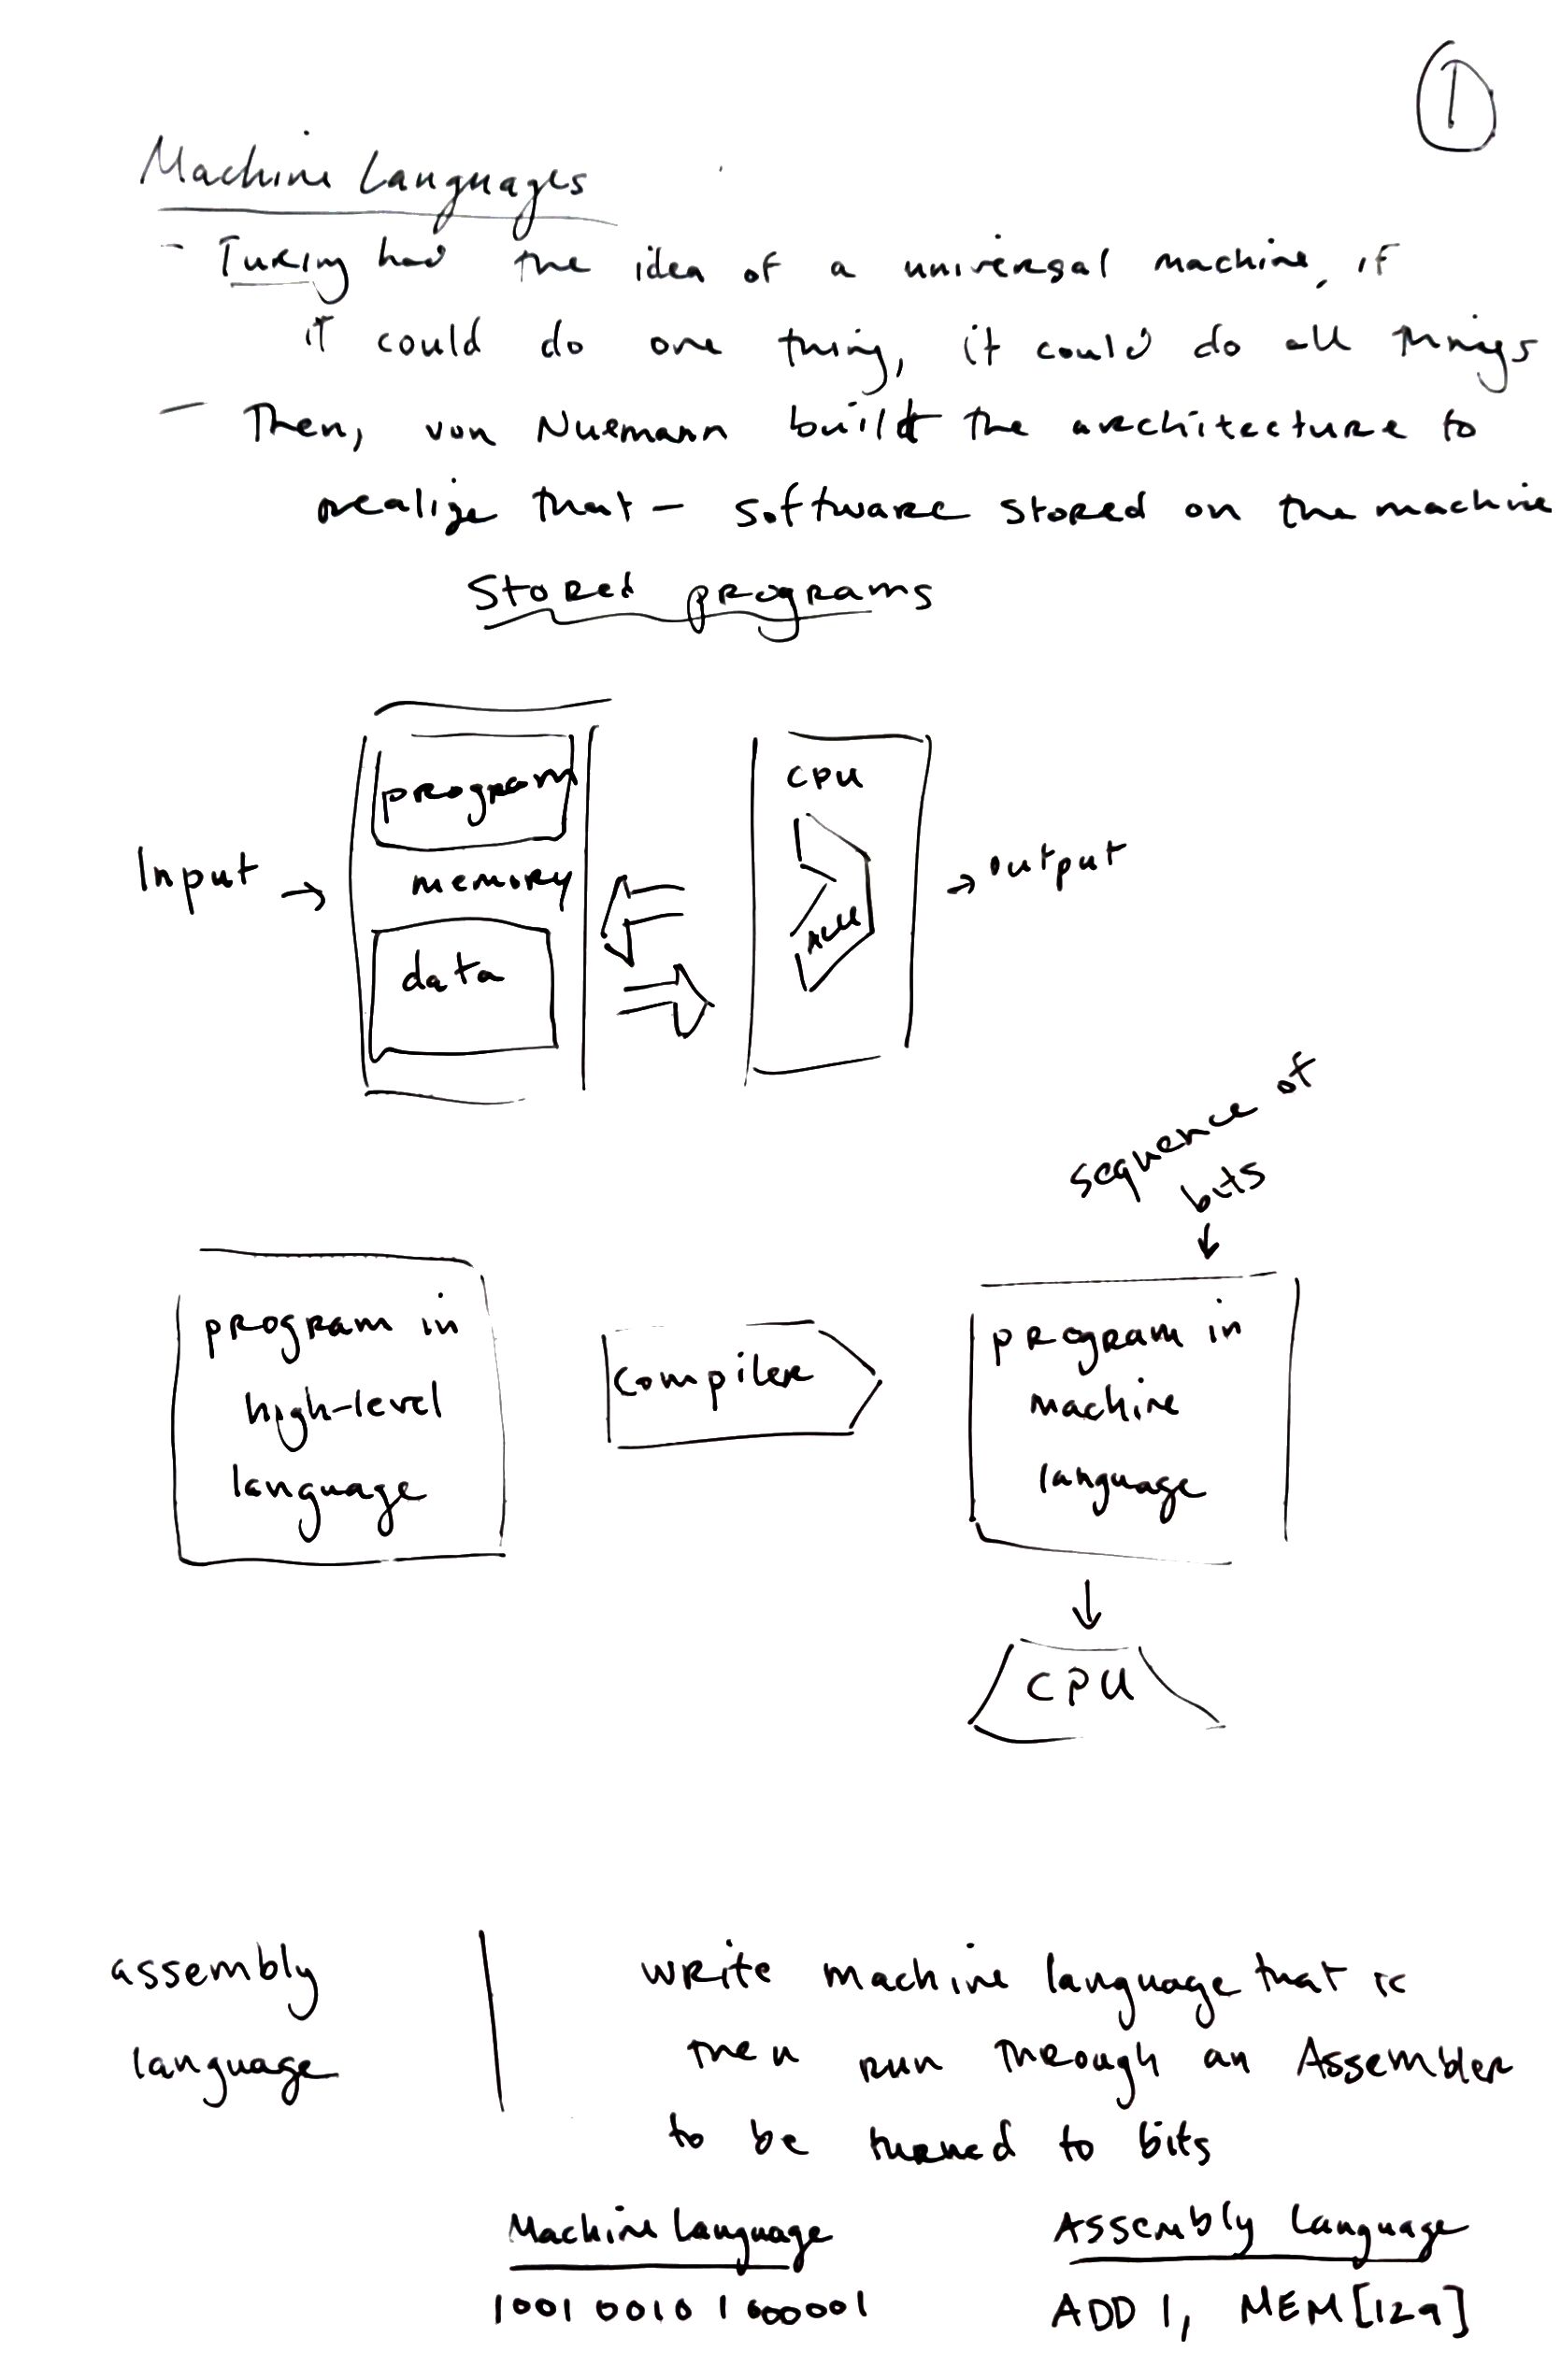 1
Machine Languages
- Turing had the idea of a universal machine, if
it could do one thing, it could do all things
- Then, von Nuemann built the architecture to
realize that - software stored on the machine
Stored programs
program
memory
data
Input →
CPU
ALU
→ output
sequence of
bits
↓
program in
high-level
language
Compiler
program in
machine
language
↓
CPU
assembly
language
write machine language that is
then run through an Assembler
to be turned to bits
Machine Language
1001 0010 1000001
Assembly Language
ADD 1, MEM[129]